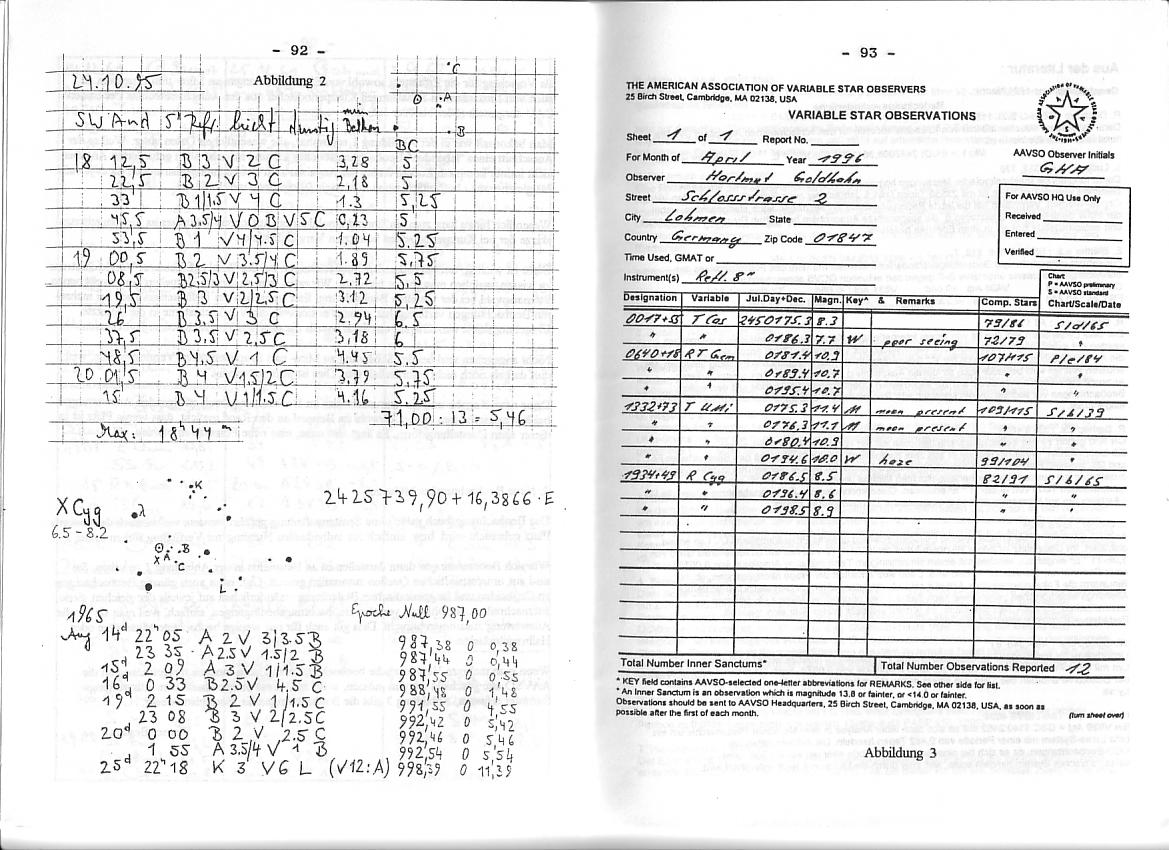 - 92 -
24.10.95
Abbildung 2
°C
A
B
SW And 5" Refr. leicht dunstig
BC
18 12,5 B 3 V 2 C 3,28 5
22,5 B 2 V 3 C 2,18 5
33 B 1/1.5 V 4 C 1.3 5,25
45,5 A 3.5/4 V 0 B V 5 C 0,23 5
53,5 B 1 V 4/4.5 C 1.04 5.25
19 00,5 B 2 V 3.5/4 C 1.89 5,75
08,5 B 2.5/3 V 2,5/3 C 2.72 5,5
19,5 B 3 V 2/2,5 C 3.12 5,25
26 B 3,5 V 3 C 2.94 6.5
37,5 B 3,5 V 2,5 C 3,18 6
48,5 B 4,5 V 1 C 4.45 5.5
20 01,5 B 4 V 1.5/2 C 3,79 5,75
15 B 4 V 1/1.5 C 4.16 5.25
71,00 : 13 = 5,46
Max: 18h 44m
K
X Cyg
λ
2425739,90 + 16,3866 · E
6.5 - 8.2
B
X A
°C
L
1965
Epoche Null 987,00
Aug 14d 22h 05 A 2 V 3/3.5 B 987,38 0 0,38
23 35 A 2.5 V 1.5/2 B 987,44 0 0,44
15d 2 09 A 3 V 1/1.5 B 987,55 0 0,55
16d 0 33 B 2.5 V 4.5 C 988,48 0 1,48
19d 2 15 B 2 V 1/1.5 C 991,55 0 4,55
23 08 B 3 V 2/2.5 C 992,42 0 5,42
20d 0 00 B 2 V 2.5 C 992,46 0 5,46
1 55 A 3.5/4 V 1 B 992,54 0 5,54
25d 22h 18 K 3 V 6 L (V12:A) 998,39 0 11,39
- 93 -
THE AMERICAN ASSOCIATION OF VARIABLE STAR OBSERVERS
25 Birch Street, Cambridge, MA 02138, USA
VARIABLE STAR OBSERVATIONS
Sheet 1 of 1 Report No.
AAVSO Observer Initials
GHA
For Month of April Year 1996
Observer Hartmut Goldhahn
Street Schlossstrasse 2
City Lohmen State
Country Germany Zip Code 01847
For AAVSO HQ Use Only
Received
Entered
Verified
Time Used, GMAT or
Instrument(s) Refl. 8"
Chart
P = AAVSO preliminary
S = AAVSO standard
Designation Variable Jul.Day+Dec. Magn. Key^ & Remarks Comp. Stars Chart/Scale/Date
0017+55 T Cas 2450175.3 8.3 79/86 S/d/65
" " 0186.3 7.7 W poor seeing 72/79 "
0640+18 RT Gem 0181.4 10.9 107/115 P/e/84
" " 0189.4 10.7 " "
" " 0195.4 10.7 " "
1332+73 T UMi 0175.3 11.4 M moon present 109/115 S/b/39
" " 0176.3 11.1 M moon present " "
" " 0180.4 10.9 " "
" " 0194.6 10.0 W haze 99/104 "
1934+49 R Cyg 0186.5 8.5 82/91 S/b/65
" " 0196.4 8.6 " "
" " 0198.5 8.9 " "
Total Number Inner Sanctums* Total Number Observations Reported 12
^ KEY field contains AAVSO-selected one-letter abbreviations for REMARKS. See other side for list.
* An Inner Sanctum is an observation which is magnitude 13.8 or fainter, or <14.0 or fainter.
Observations should be sent to AAVSO Headquarters, 25 Birch Street, Cambridge, MA 02138, USA, as soon as
possible after the first of each month.
(turn sheet over)
Abbildung 3